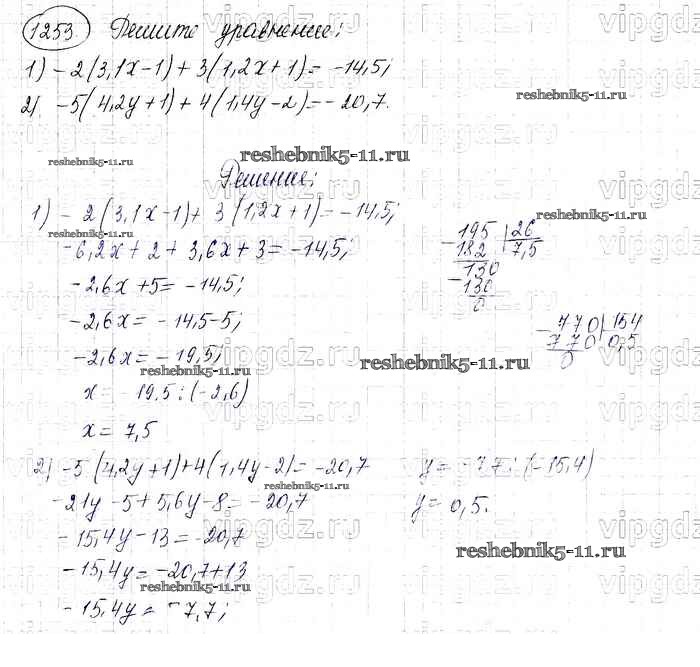 1253. Решите уравнение:
1) -2(3,1x-1)+3(1,2x+1)=-14,5;
2) -5(4,2y+1)+4(1,4y-2)=-20,7.
Решение:
1) -2(3,1x-1)+3(1,2x+1)=-14,5;
-6,2x+2+3,6x+3=-14,5;
-2,6x+5=-14,5;
-2,6x=-14,5-5;
-2,6x=-19,5;
x=-19,5:(-2,6)
x=7,5
195 | 26
182 | 7,5
130
-130
0
-770 | 154
770 | 0,5
0
2) -5(4,2y+1)+4(1,4y-2)=-20,7
-21y-5+5,6y-8=-20,7
-15,4y-13=-20,7
-15,4y=-20,7+13
-15,4y=-7,7;
y=-7,7:(-15,4)
y=0,5.
reshebnik5-11.ru
reshebnik5-11.ru
reshebnik5-11.ru
reshebnik5-11.ru
reshebnik5-11.ru
reshebnik5-11.ru
reshebnik5-11.ru
reshebnik5-11.ru
reshebnik5-11.ru
vipgdz.ru
vipgdz.ru
vipgdz.ru
vipgdz.ru